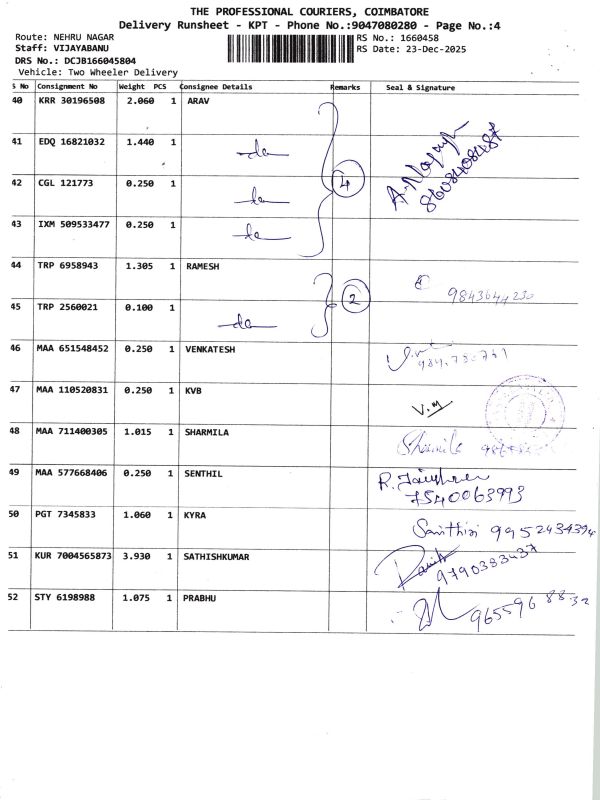 THE PROFESSIONAL COURIERS, COIMBATORE
Delivery Runsheet - KPT - Phone No.:9047080280 - Page No.:4
Route: NEHRU NAGAR RS No.: 1660458
Staff: VIJAYABANU RS Date: 23-Dec-2025
DRS No.: DCJB166045804
Vehicle: Two Wheeler Delivery
S No Consignment No Weight PCS Consignee Details Remarks Seal & Signature
40 KRR 30196508 2.060 1 ARAV
41 EDQ 16821032 1.440 1 do
42 CGL 121773 0.250 1 do 4 8608408487
43 IXM 509533477 0.250 1 do
44 TRP 6958943 1.305 1 RAMESH 9843644230
45 TRP 2560021 0.100 1 do 2
46 MAA 651548452 0.250 1 VENKATESH
47 MAA 110520831 0.250 1 KVB V.M
48 MAA 711400305 1.015 1 SHARMILA Sharmila
49 MAA 577668406 0.250 1 SENTHIL R.
7540063993
50 PGT 7345833 1.060 1 KYRA 9952434394
51 KUR 7004565873 3.930 1 SATHISHKUMAR 9790383437
52 STY 6198988 1.075 1 PRABHU 9655968832